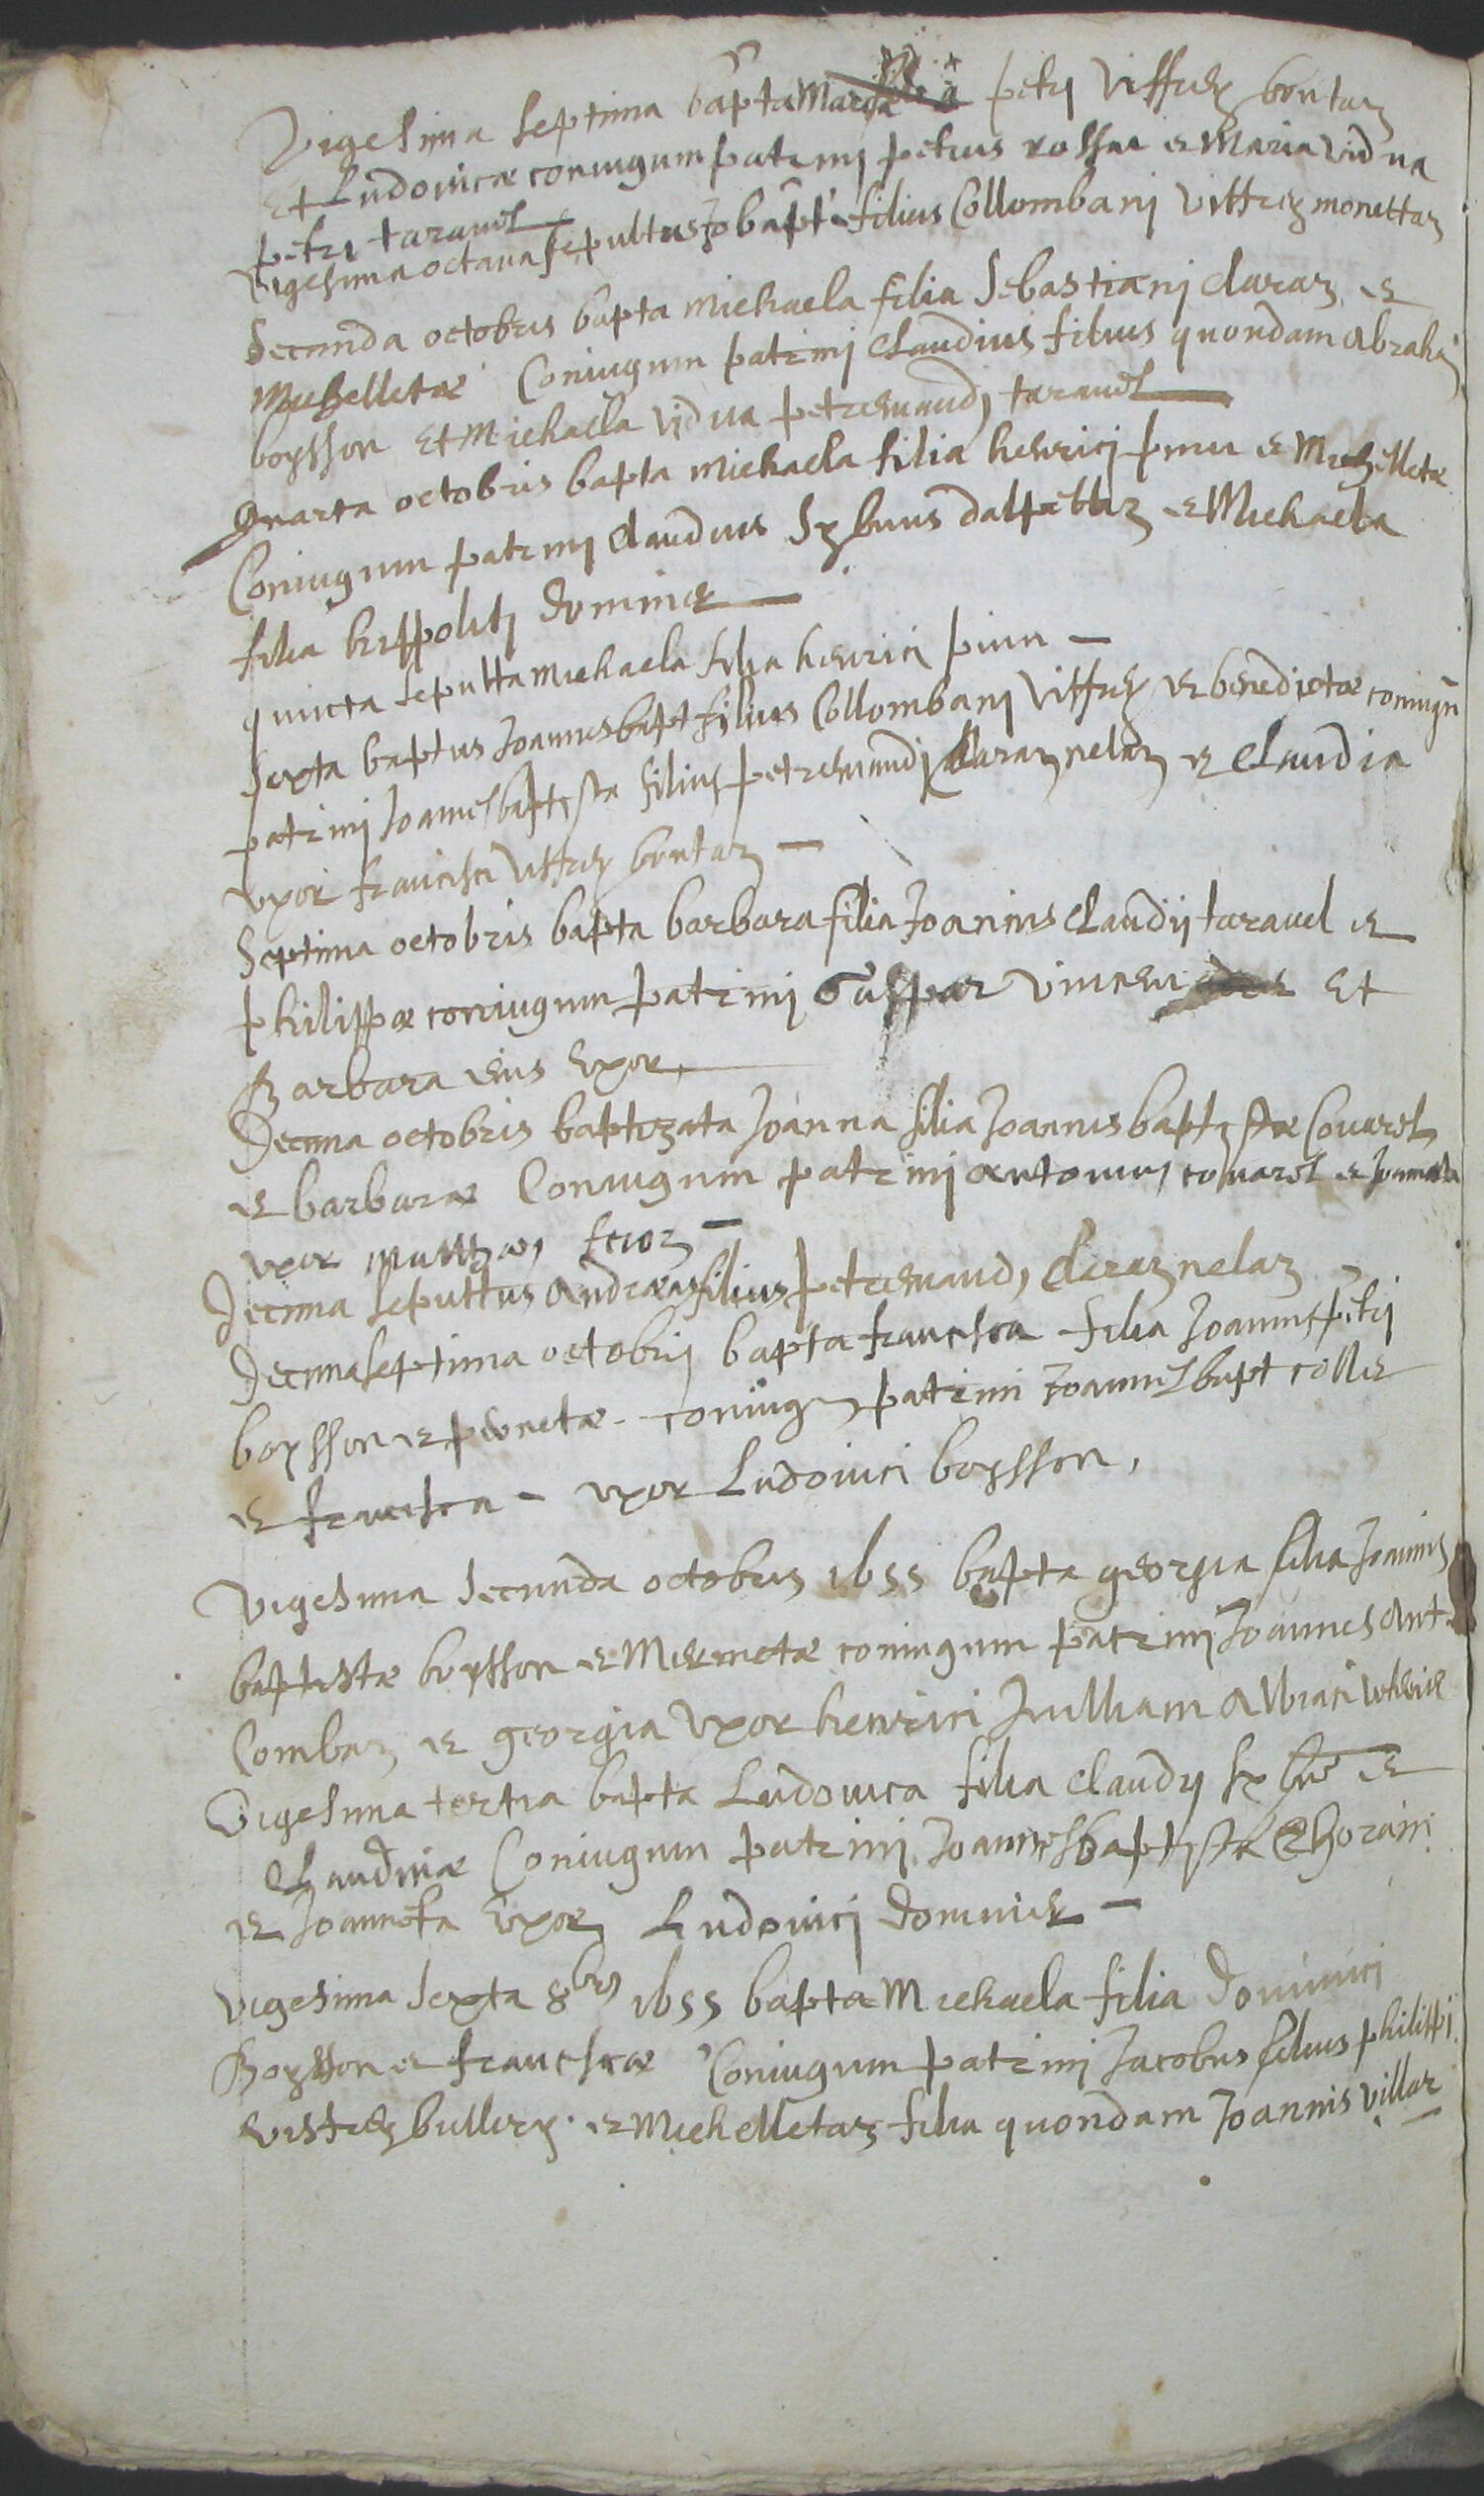 Vigesima septima bapta petri Viffrey bontaz
Et Ludovicæ coniugum patrini petrus rossat et Maria vidua
petri taravel
Vigesima octava sepultus Jo bapt filius Collombani Viffrey monettaz
Secunda octobris bapta michaela filia Sebastiani claraz et
Michelletæ Coniugum patrini claudius filius quondam Abrahaj
boysson Et Michaela vidua petremandj taravel
Quarta octobris bapta michaela filia henricj et Michelletæ
Coniugum patrinj claudius et Michaela
filia hippolitj dominer
quinta sepulta michaela filia henrici
Sexta baptus Joannesbapt filius Collombanj Viffrey et benedictæ coniugu
patrinj Joannesbaptista filius petremandj claraz nelaz et claudia
uxor francisci Viffrey bontaz
Septima octobris bapta barbara filia Joannis claudij taravel et
philippæ coniugum patrinj Gaspar Et
Barbara eius uxor
Decima octobris baptizata Joanna filia Joannisbaptistæ Covarel
et barbaræ Coniugum patrinj antonius covarel et Joanneta
uxor
Decima sepultus andræas filius petremandj claraz nelaz
Decimaseptima octobris bapta francisca filia Joannis petri
boysson et pernetæ coniugu patrini Joannesbapt collie
et francisca uxor Ludovici boysson,
Vigesima secunda octobris 1655 bapta georgia filia Joannis
baptistæ boysson et Mermetæ coniugum patrinj Joannes Ant
Combaz et georgia uxor henrici Julliam
Vigesima tertia bapta Ludovica filia claudij et
Claudinæ Coniugum patrinj Joannesbaptista
et Joanneta uxor Ludovicj dominier
Vigesima sexta 8bris 1655 bapta Michaela filia dominici
Boysson et franciscæ Coniugum patrinj Jacobus filius philippi
et Michelletaz filia quondam Joannis villar